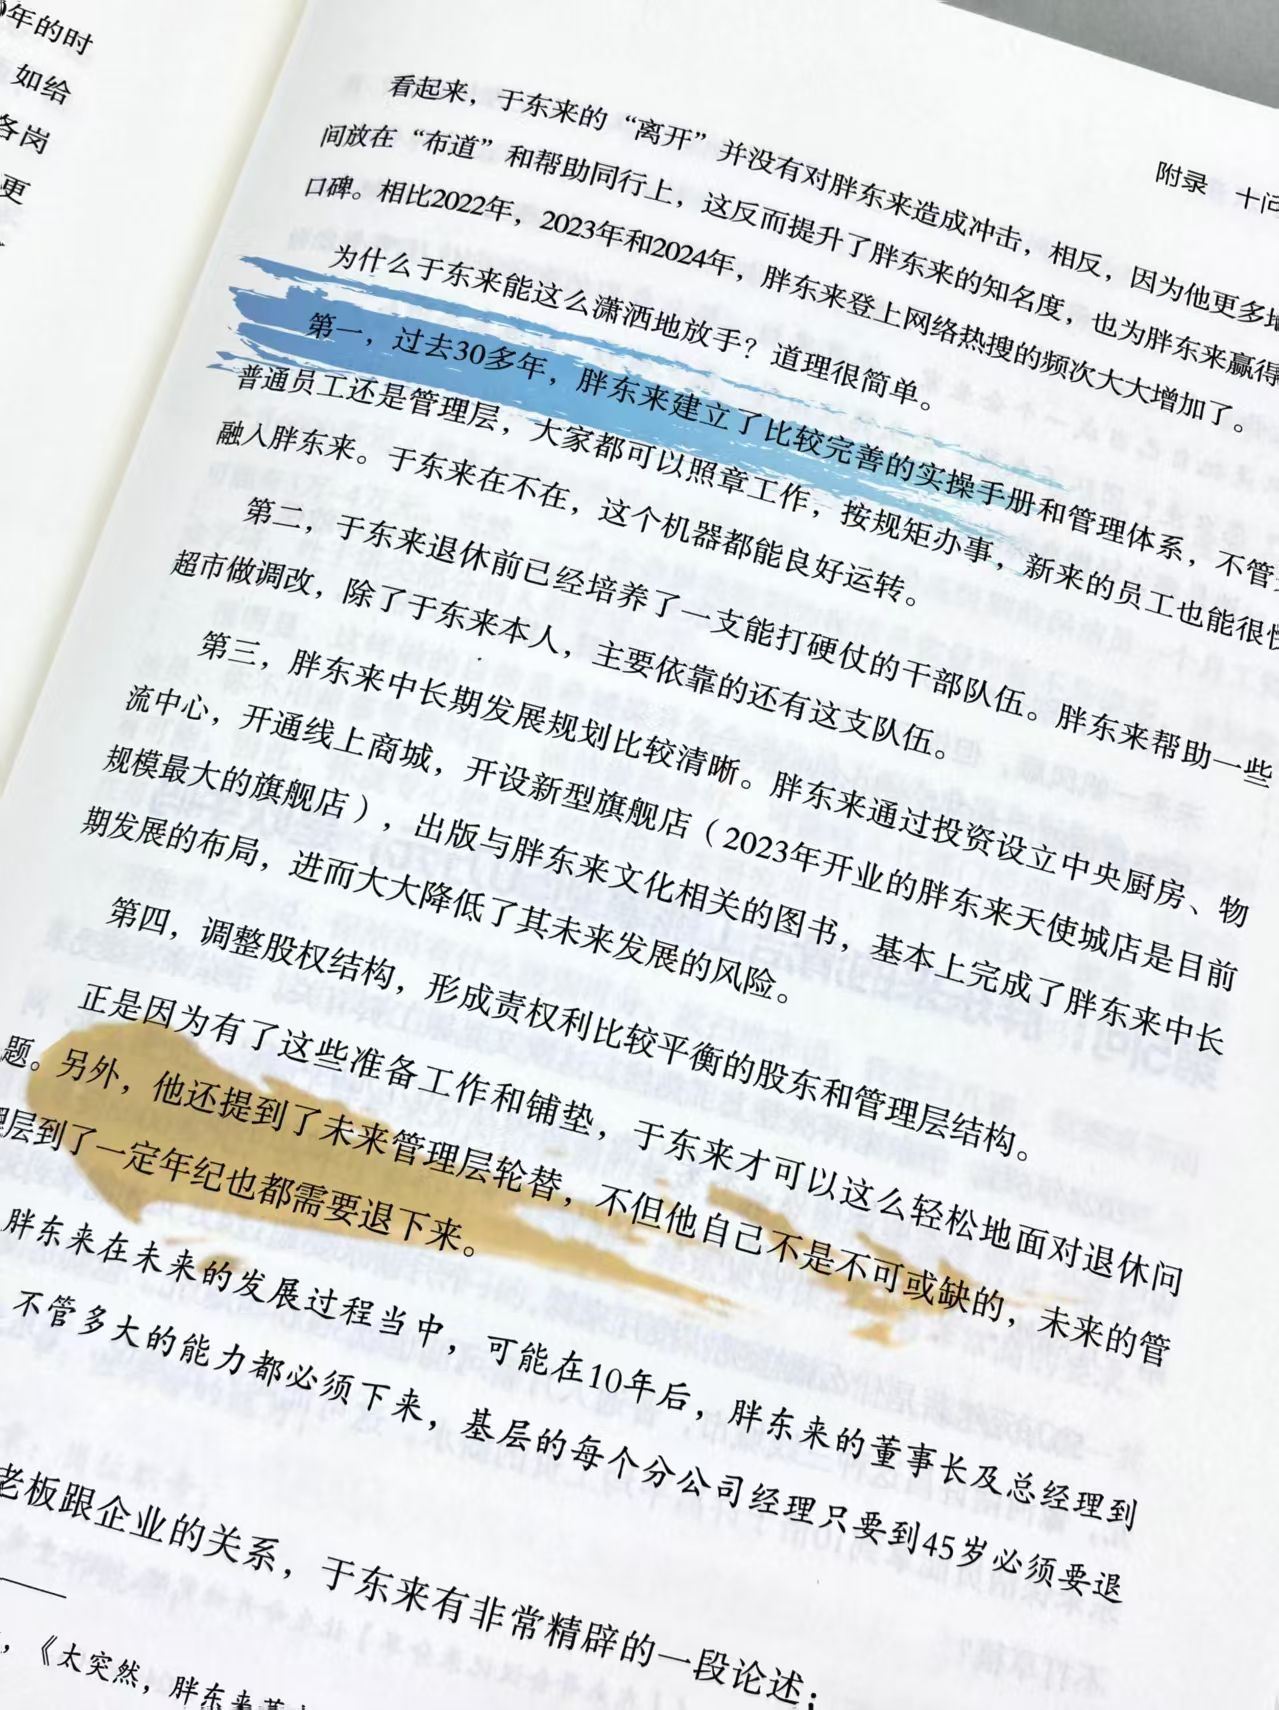 年的时
如给
各岗
更
附录 十问
看起来，于东来的“离开”并没有对胖东来造成冲击，相反，因为他更多
间放在“布道”和帮助同行上，这反而提升了胖东来的知名度，也为胖东来赢得
口碑。相比2022年，2023年和2024年，胖东来登上网络热搜的频次大大增加了。
为什么于东来能这么潇洒地放手？道理很简单。
第一，过去30多年，胖东来建立了比较完善的实操手册和管理体系，不管
普通员工还是管理层，大家都可以照章工作，按规矩办事，新来的员工也能很
融入胖东来。于东来在不在，这个机器都能良好运转。
第二，于东来退休前已经培养了一支能打硬仗的干部队伍。胖东来帮助一些
超市做调改，除了于东来本人，主要依靠的还有这支队伍。
第三，胖东来中长期发展规划比较清晰。胖东来通过投资设立中央厨房、物
流中心，开通线上商城，开设新型旗舰店（2023年开业的胖东来天使城店是目前
规模最大的旗舰店），出版与胖东来文化相关的图书，基本上完成了胖东来中长
期发展的布局，进而大大降低了其未来发展的风险。
第四，调整股权结构，形成责权利比较平衡的股东和管理层结构。
正是因为有了这些准备工作和铺垫，于东来才可以这么轻松地面对退休问
题。另外，他还提到了未来管理层轮替，不但他自己不是不可或缺的，未来的管
理层到了一定年纪也都需要退下来。
胖东来在未来的发展过程当中，可能在10年后，胖东来的董事长及总经理到
不管多大的能力都必须下来，基层的每个分公司经理只要到45岁必须要退
老板跟企业的关系，于东来有非常精辟的一段论述：
，《太突然，胖东来